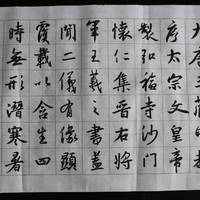 序太宗文皇帝
製弘福寺沙門
懷仁集晉右將
軍王羲之書蓋
聞二儀有像顯
覆載以含生四
時無形潛寒暑